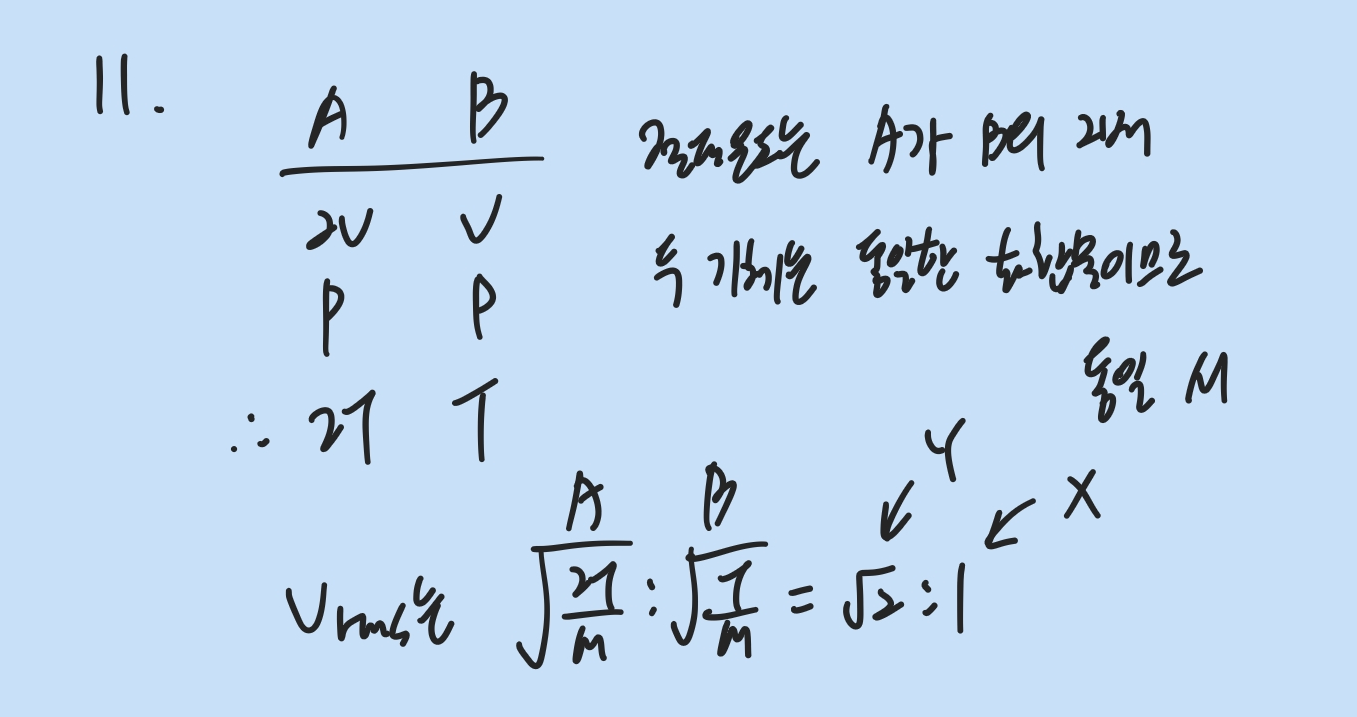 11.
A B
2V V
P P
∴ 2T T
절대온도는 A가 B의 2배
두 기체는 동일한 혼합물이므로
동일 M
Y
X
A B
Vrms는 √(2T/M) : √(T/M) = √2 : 1